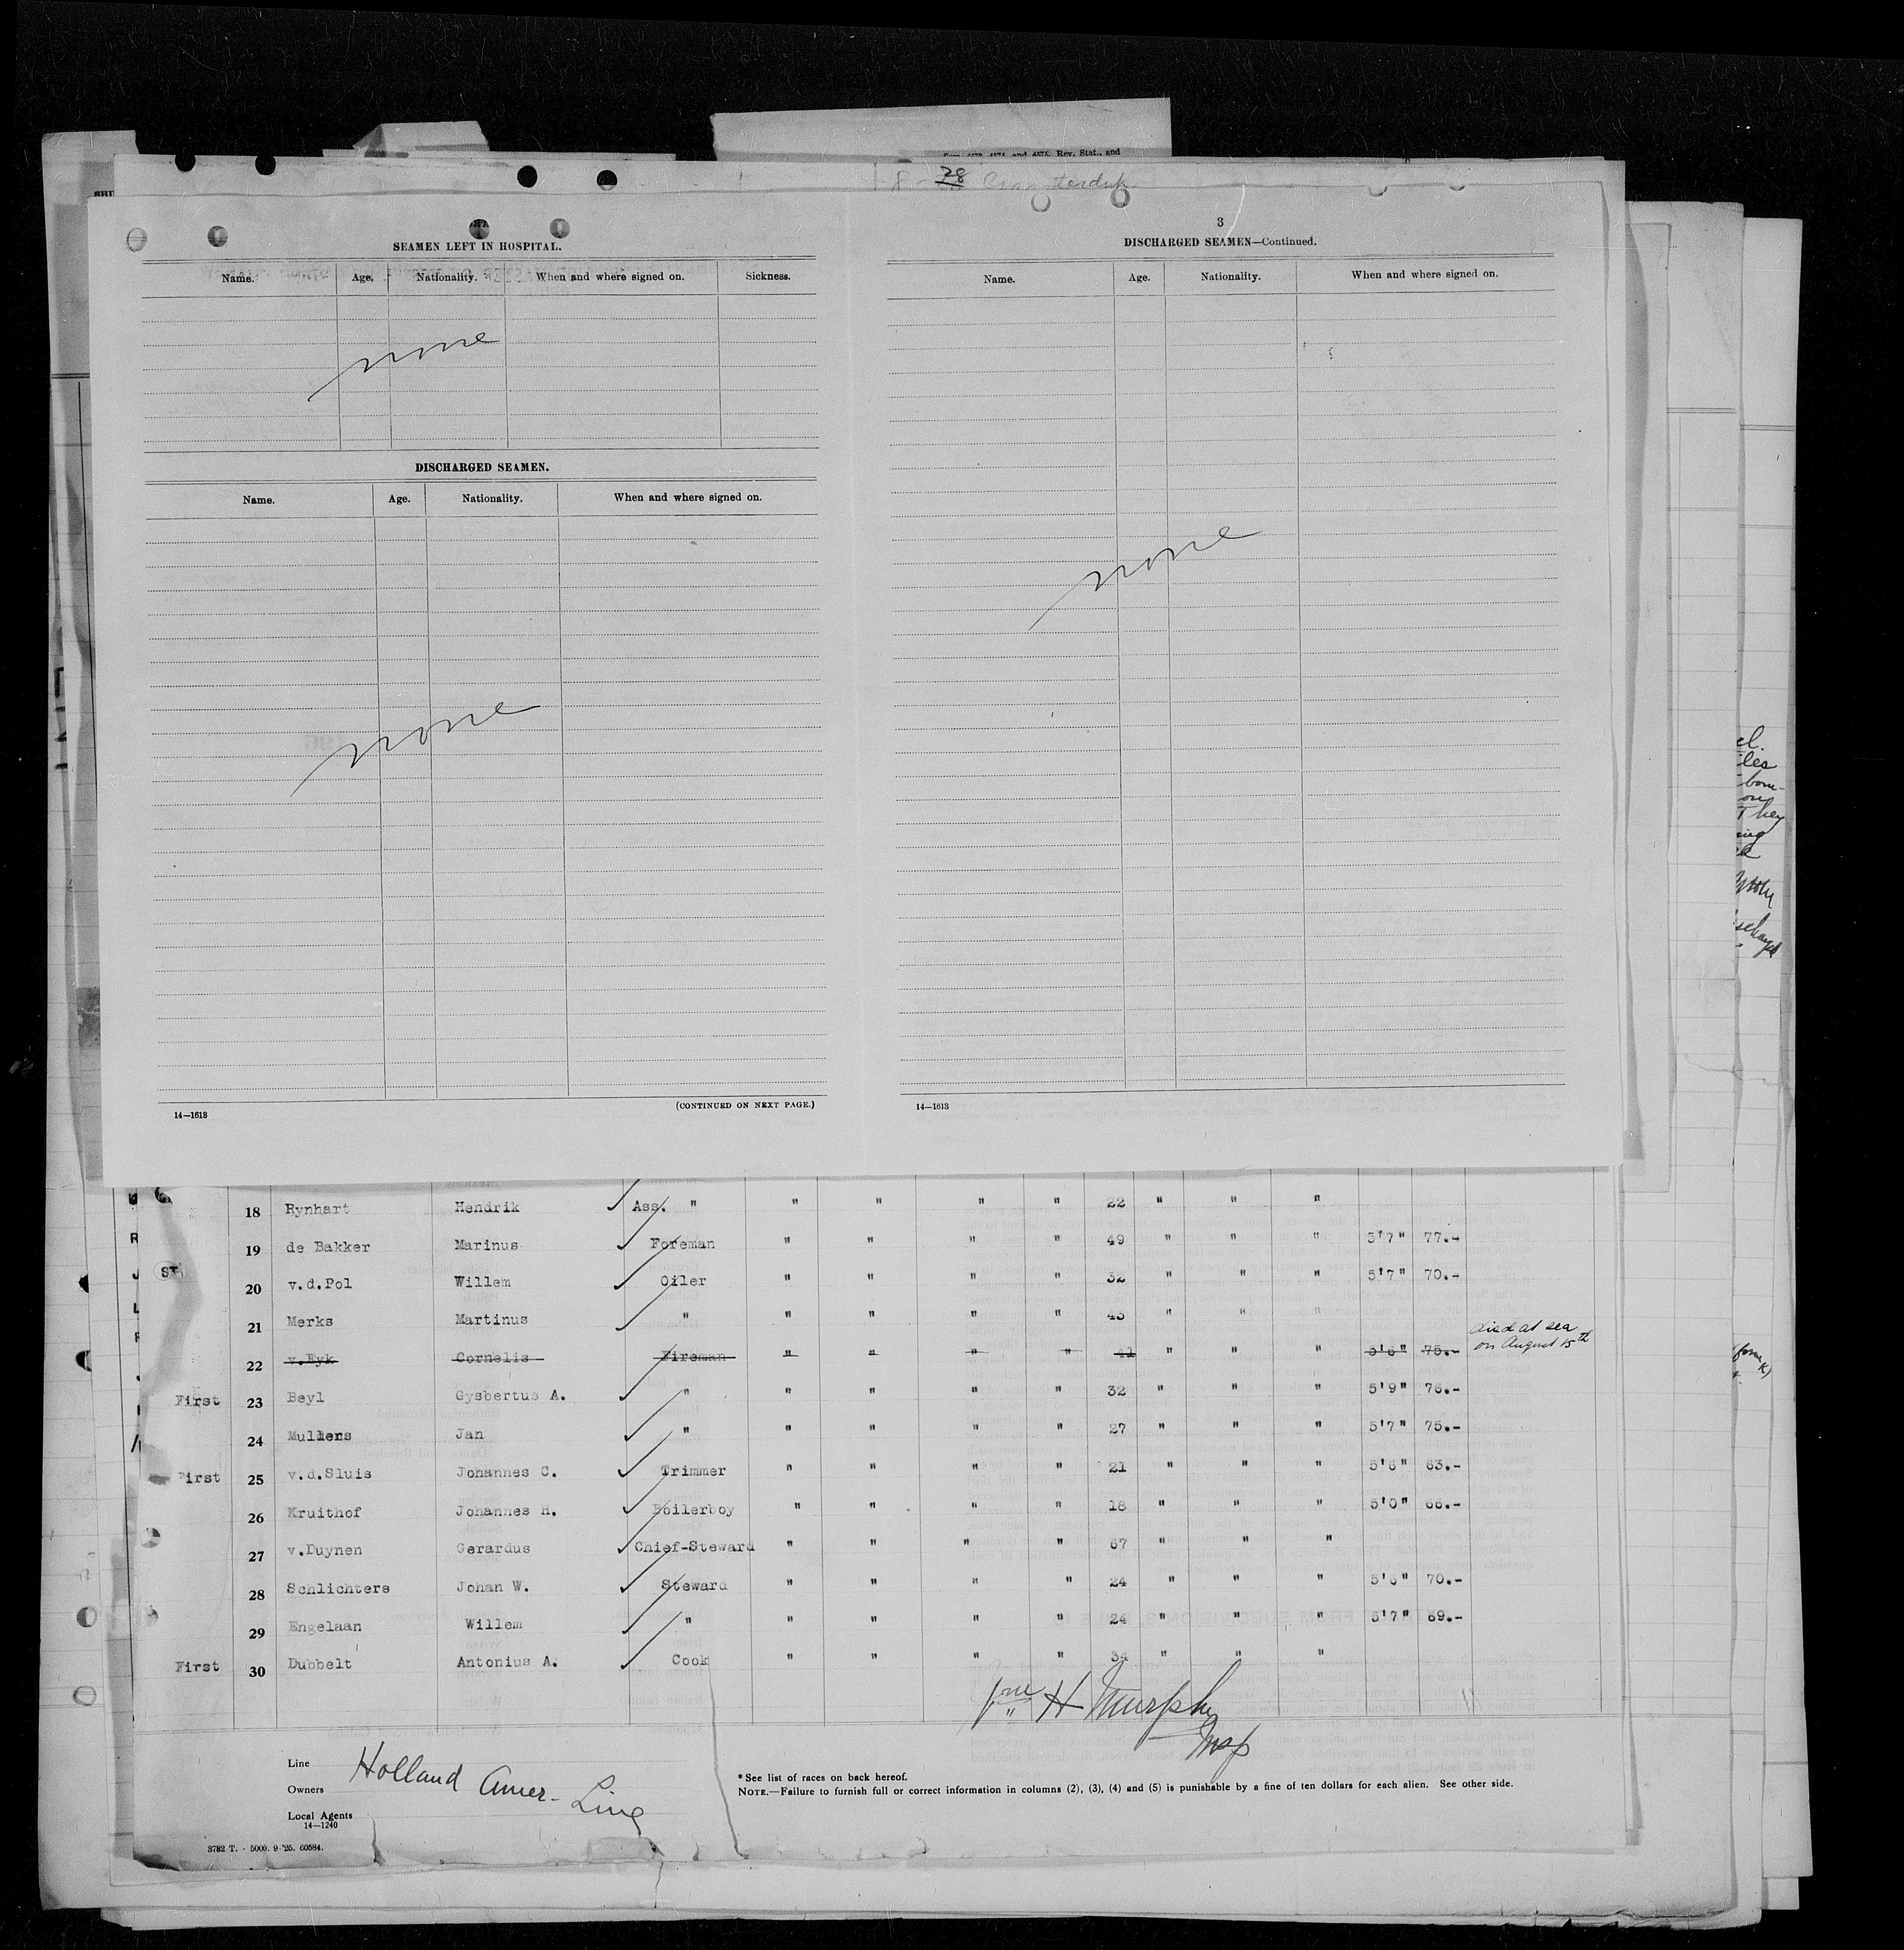 Rev. Stat., and
28
3
SEAMEN LEFT IN HOSPITAL.
Name. Age. Nationality. When and where signed on. Sickness.
none
DISCHARGED SEAMEN.
Name. Age. Nationality. When and where signed on.
none
14—1613 (CONTINUED ON NEXT PAGE.)
DISCHARGED SEAMEN—Continued.
Name. Age. Nationality. When and where signed on.
none
14—1613
18 Rynhart Hendrik Ass. " " " " " 22 " " "
19 de Bakker Marinus Foreman " " " " 49 " " " 5'7" 77.-
20 v.d.Pol Willem Oiler " " " " 32 " " " 5'7" 70.-
21 Merks Martinus " " " " " 43 " " "
22 v.Eyk Cornelis Fireman " " " " 41 " " " 5'6" 75.- died at sea
on August 15th
First 23 Beyl Gysbertus A. " " " " " 32 " " " 5'9" 76.-
24 Mullens Jan " " " " " 27 " " " 5'7" 75.-
First 25 v.d.Sluis Johannes C. Trimmer " " " " 21 " " " 5'6" 63.-
26 Kruithof Johannes H. Boilerboy " " " " 18 " " " 5'0" 66.-
27 v.Duynen Gerardus Chief-Steward " " " " 67 " " "
28 Schlichters Johan W. Steward " " " " 24 " " " 5'6" 70.-
29 Engelaan Willem " " " " " 24 " " " 5'7" 69.-
First 30 Dubbelt Antonius A. Cook " " " " 34 " " "
H Murphy
Insp
Line Holland Amer- Line
Owners
Local Agents
14—1240
3782 T. - 5000. 9-'25. 60584.
* See list of races on back hereof.
NOTE.—Failure to furnish full or correct information in columns (2), (3), (4) and (5) is punishable by a fine of ten dollars for each alien. See other side.